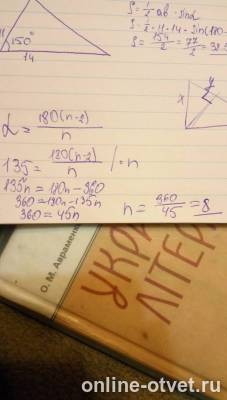 S = 1/2 ab · sinα
S = 1/2 · 11 · 14 · sin(180-
S = 154/2 = 77/2 = 38.5
150°
14
x
y
α = 180(n-2)/n
135 = 180(n-2)/n | = n
135n = 180n - 360
360 = 180n - 135n
360 = 45n
n = 360/45 = 8
О. М. Авраменко
УКР
ЛІТЕР
online-otvet.ru